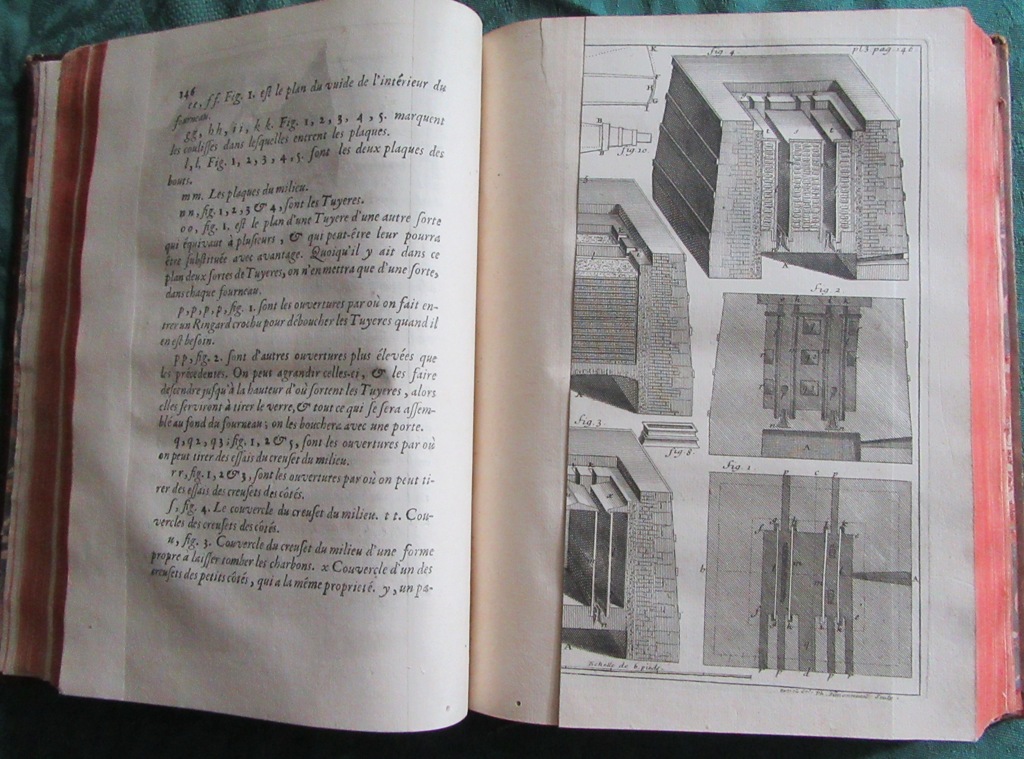 146
ee, ff. Fig. 1. est le plan du vuide de l'intérieur du
fourneau.
gg, hh, ii, kk. Fig. 1, 2, 3, 4, 5. marquent
les coulisses dans lesquelles entrent les plaques.
l, l, Fig. 1, 2, 3, 4, 5. sont les deux plaques des
bouts.
mm. Les plaques du milieu.
nn, fig. 1, 2, 3 & 4, sont les Tuyeres.
oo, fig. 1. est le plan d'une Tuyere d'une autre sorte
qui équivaut à plusieurs, & qui peut-être leur pourra
être substituée avec avantage. Quoiqu'il y ait dans ce
plan deux sortes de Tuyeres, on n'en mettra que d'une sorte,
dans chaque fourneau.
p, p, p, p, fig. 1. sont les ouvertures par où on fait en-
trer un Ringard crochu pour déboucher les Tuyeres quand il
en est besoin.
pp, fig. 2. sont d'autres ouvertures plus élevées que
les précedentes. On peut agrandir celles-ci, & les faire
descendre jusqu'à la hauteur d'où sortent les Tuyeres, alors
elles serviront à tirer le verre, & tout ce qui se sera assem-
blé au fond du fourneau; on les bouchera avec une porte.
q, q2, q3; fig. 1, 2 & 5, sont les ouvertures par où
on peut tirer des essais du creuset du milieu.
rr, fig. 1, 2 & 3, sont les ouvertures par où on peut ti-
rer des essais des creusets des côtés.
s, fig. 4. Le couvercle du creuset du milieu. tt. Cou-
vercles des creusets des côtés.
u, fig. 3. Couvercle du creuset du milieu d'une forme
propre à laisser tomber les charbons. x Couvercle d'un des
creusets des petits côtés, qui a la même proprieté. y, un pa-
fig. 4.
pl. 3. pag. 146
K
H
G
fig. 10.
A
fig. 2
A
fig. 3.
fig. 8.
fig. 1
A
b
Echelle de 6 pieds